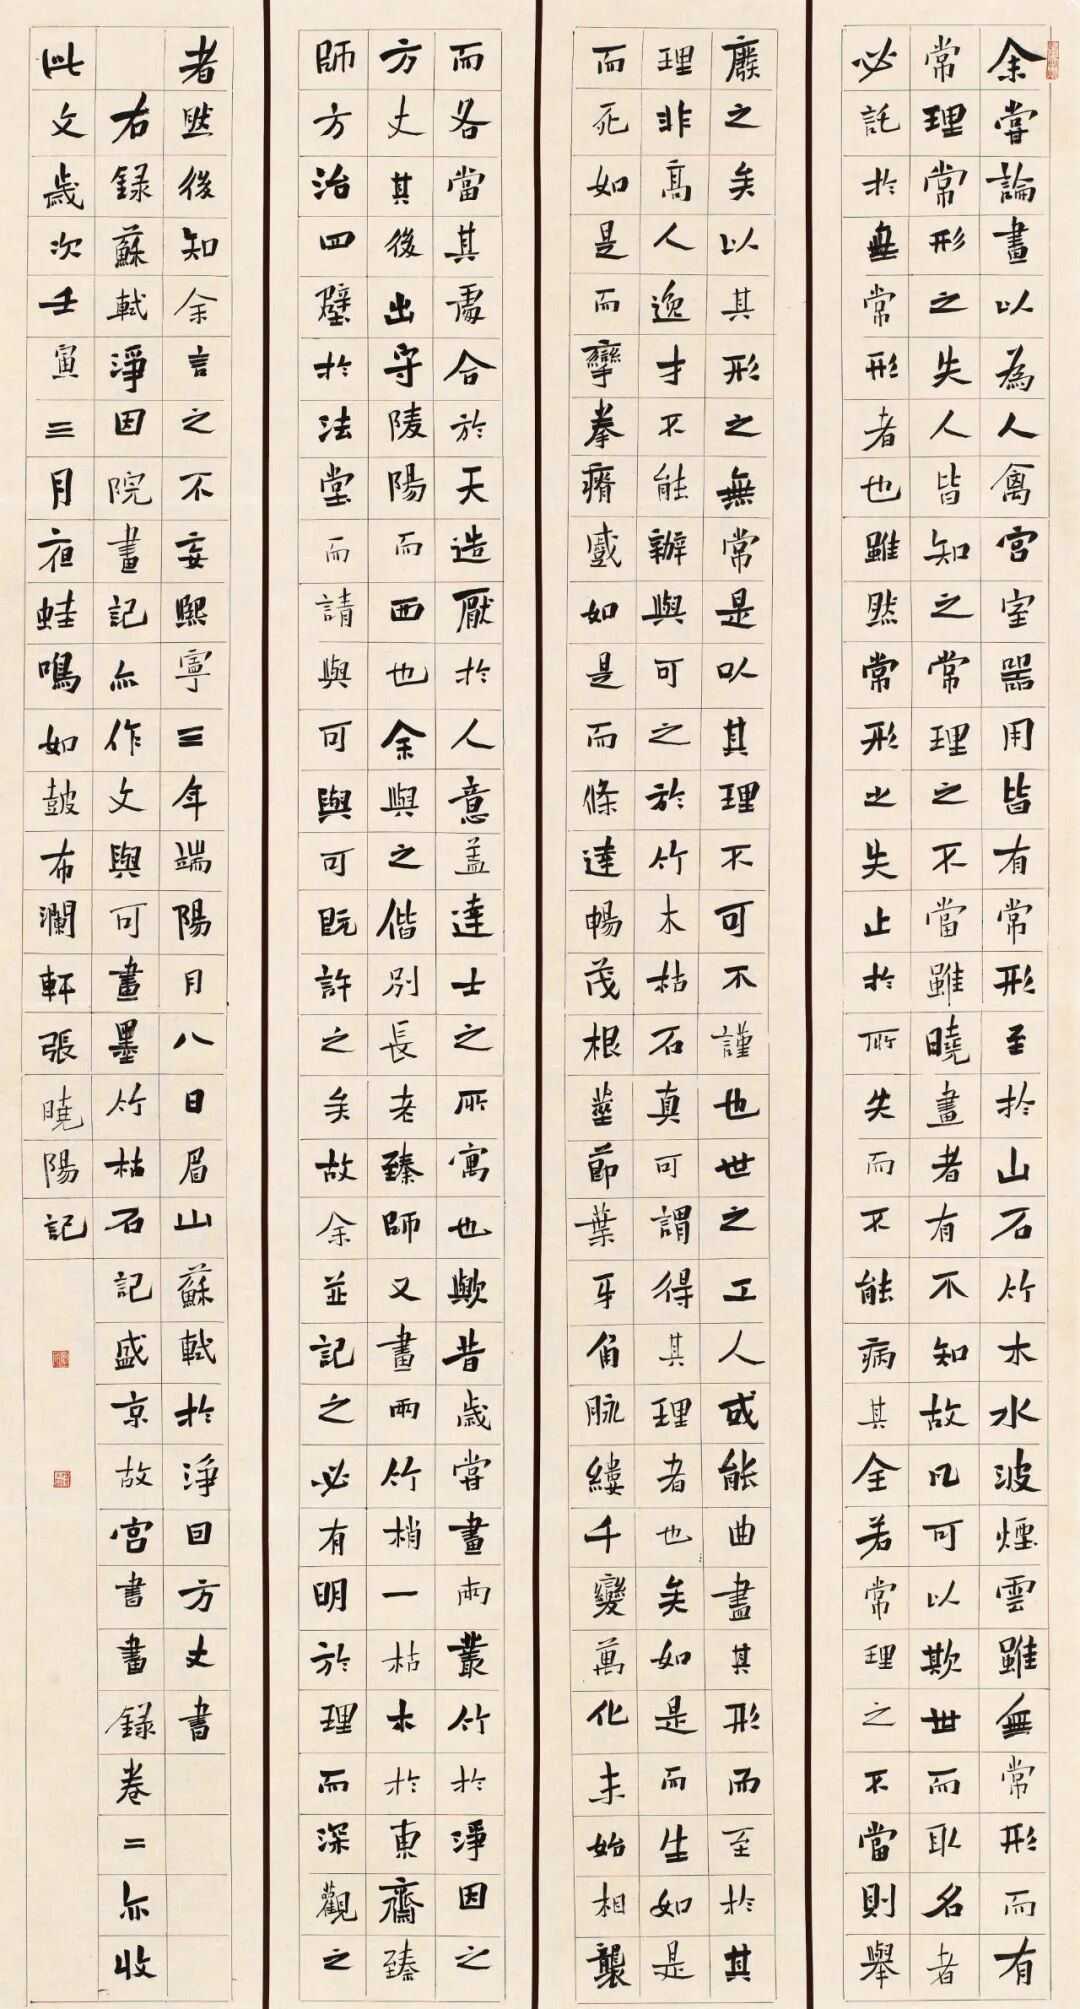 余嘗論畫以為人禽宮室器用皆有常形至於山石竹木水波煙雲雖無常形而有
常理常形之失人皆知之常理之不當雖曉畫者有不知故凡可以欺世而取名者
必託於無常形者也雖然常形之失止於所失而不能病其全若常理之不當則舉
廢之矣以其形之無常是以其理不可不謹也世之工人或能曲盡其形而至於其
理非高人逸才不能辦與可之於竹木枯石真可謂得其理者也矣如是而生如是
而死如是而攣拳瘠蹙如是而條達暢茂根莖節葉牙角脈縷千變萬化未始相襲
而各當其處合於天造厭於人意蓋達士之所寓也歟昔歲嘗畫兩叢竹於淨因之
方丈其後出守陵陽而西也余與之偕別長老臻師又畫兩竹梢一枯木於東齋臻
師方治四壁於法堂而請與可與可既許之矣故余並記之必有明於理而深觀之
者然後知余言之不妄熙寧三年端陽月八日眉山蘇軾於淨因方丈書
右録蘇軾淨因院畫記亦作文與可畫墨竹枯石記盛京故宮書畫錄卷二亦收
此文歲次壬寅三月夜蛙鳴如鼓布瀾軒張曉陽記